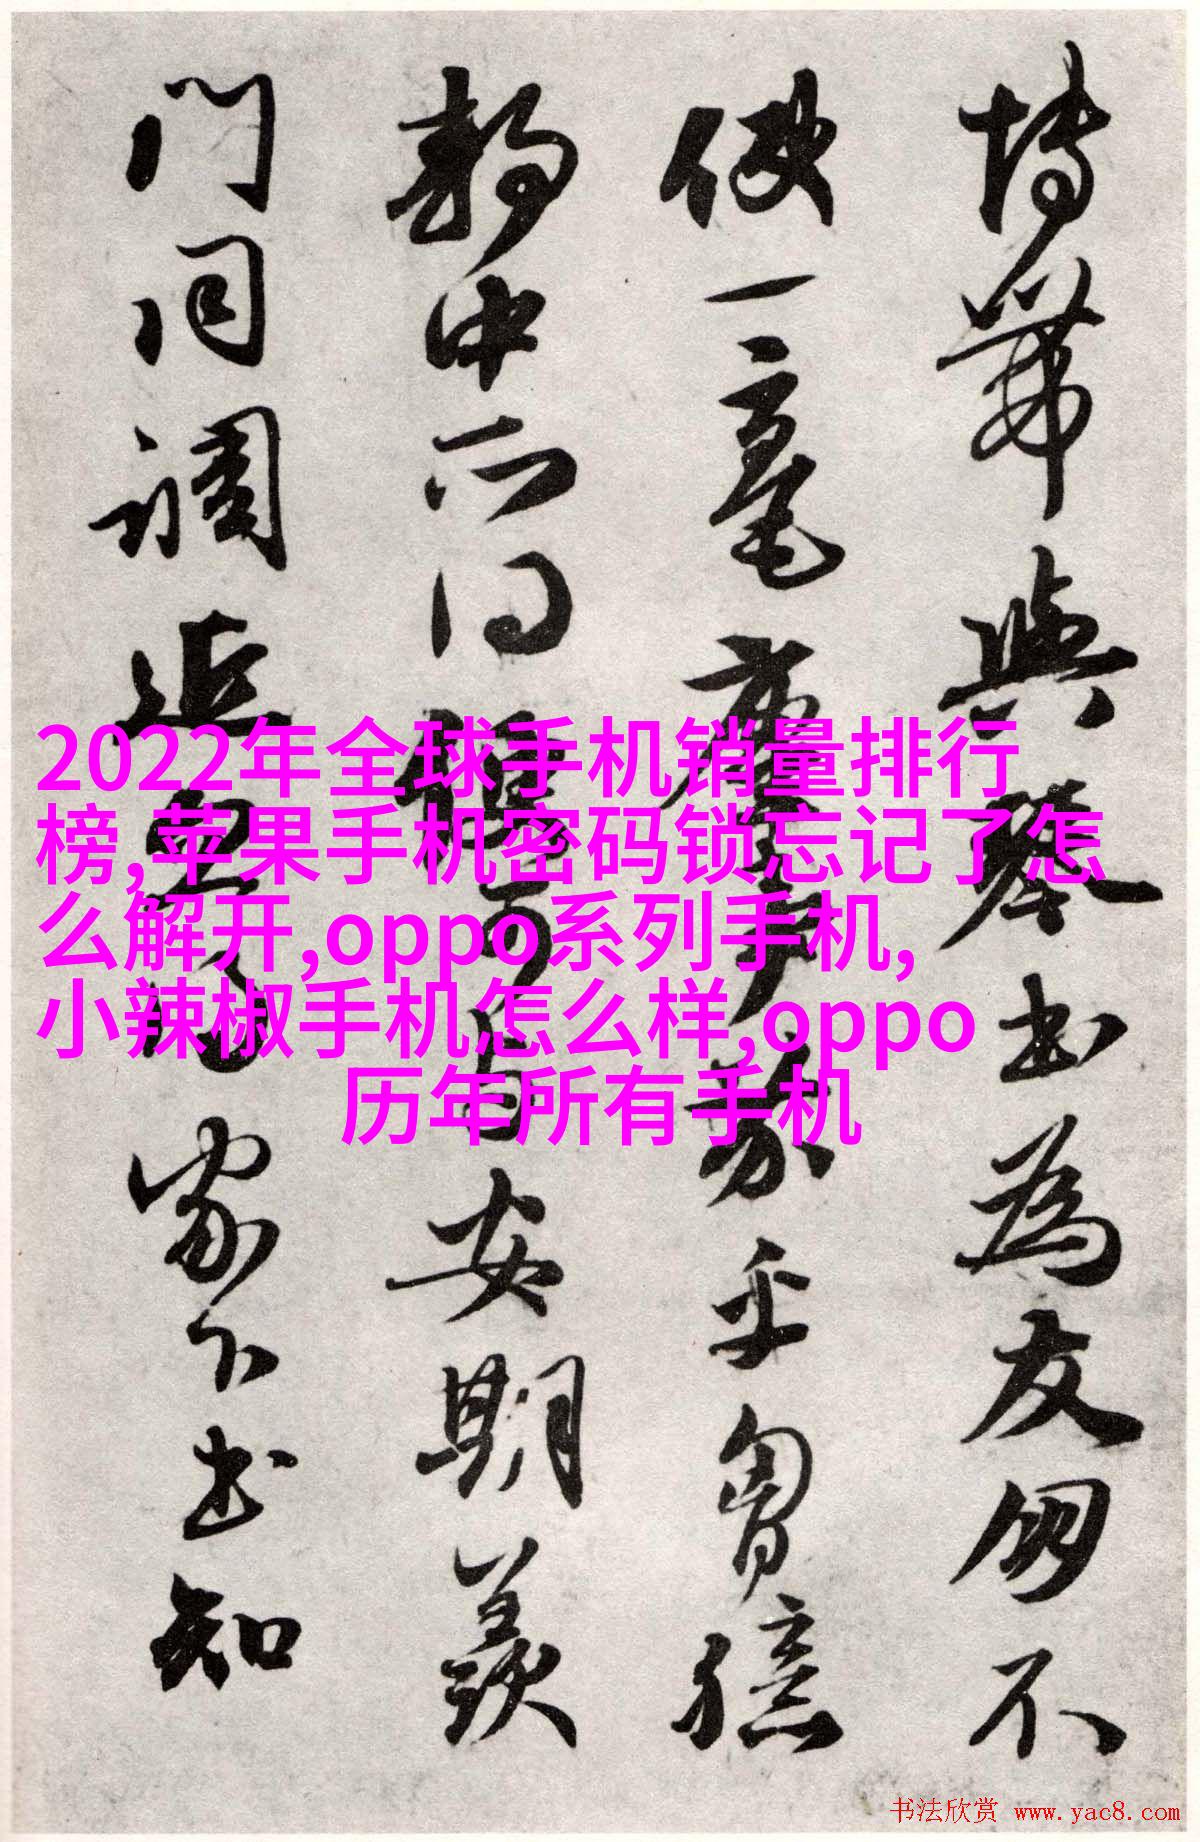 2022年全球手机销量排行
榜,苹果手机密码锁忘记了怎
么解开,oppo系列手机,
小辣椒手机怎么样,oppo
历年所有手机
與琴書為友不
使一毫塵事縈乎胷臆
静中所得與安期羡
門同調家下書知
书法欣赏 www.yac8.com